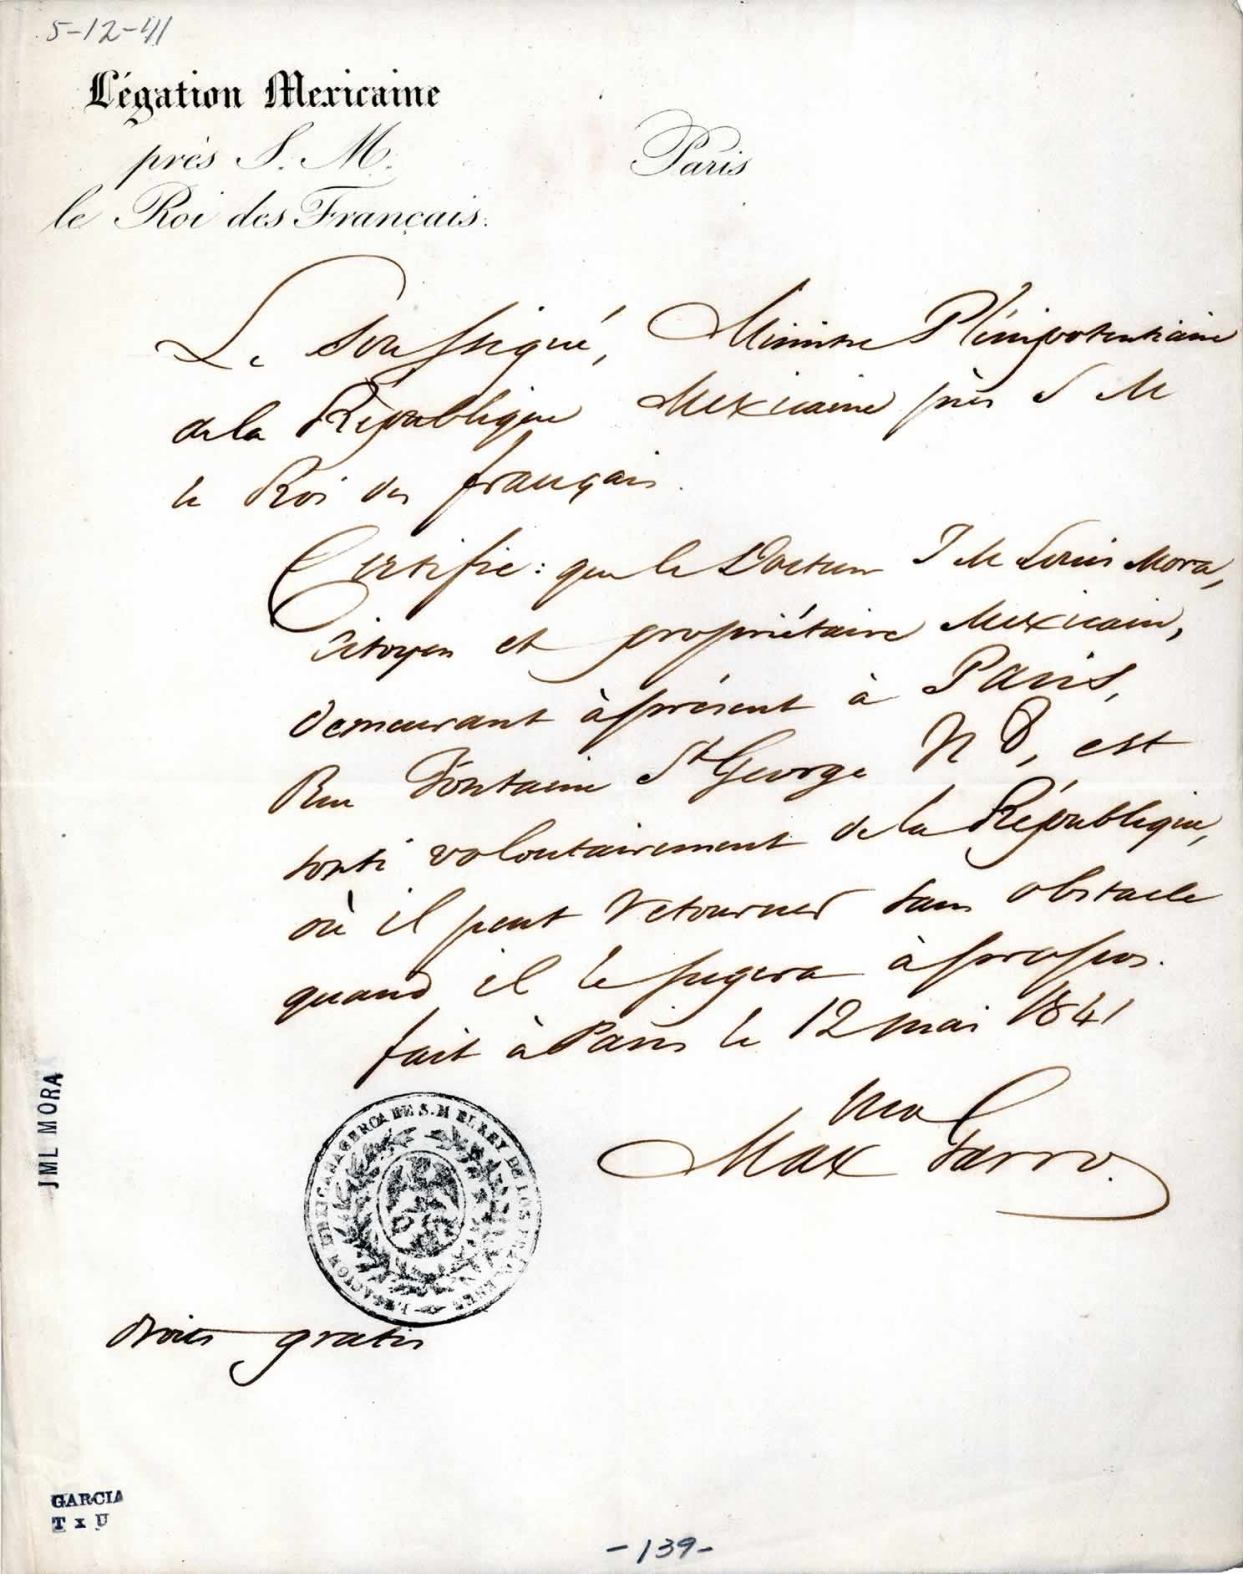 5-12-41
Légation Mexicaine
près S. M.
le Roi des Français.
Paris
Le Soussigné, Ministre Plénipotentiaire
de la République Mexicaine près S M
le Roi des français.
Certifie: que le Docteur J M Louis Mora,
Citoyen et propriétaire Mexicain,
demeurant àprésent à Paris,
Rue Fontaine St George N 8, est
sorti volontairement de la République,
où il peut retourner sans obstacle
quand il le jugera àpropos.
fait à Paris le 12 mai 1841
Max Garro.
LEGACION MEXICANA CERCA DE S.M EL REY DE LOS FRANCESES
droits gratis
JML MORA
GARCIA
T x U
-139-